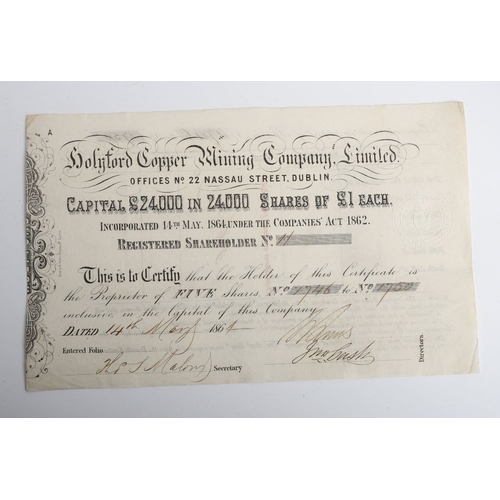 A
Holyford Copper Mining Company, Limited.
OFFICES Nº 22 NASSAU STREET, DUBLIN.
CAPITAL £24,000 IN 24,000 SHARES OF £1 EACH.
INCORPORATED 14TH MAY, 1864, UNDER THE COMPANIES' ACT 1862.
REGISTERED SHAREHOLDER Nº 11
This is to Certify that the Holder of this Certificate is
the Proprietor of FIVE Shares, Nº 1746 to Nº 1750
inclusive in the Capital of this Company
DATED 14th May 1864
Entered Folio
Secretary
Directors